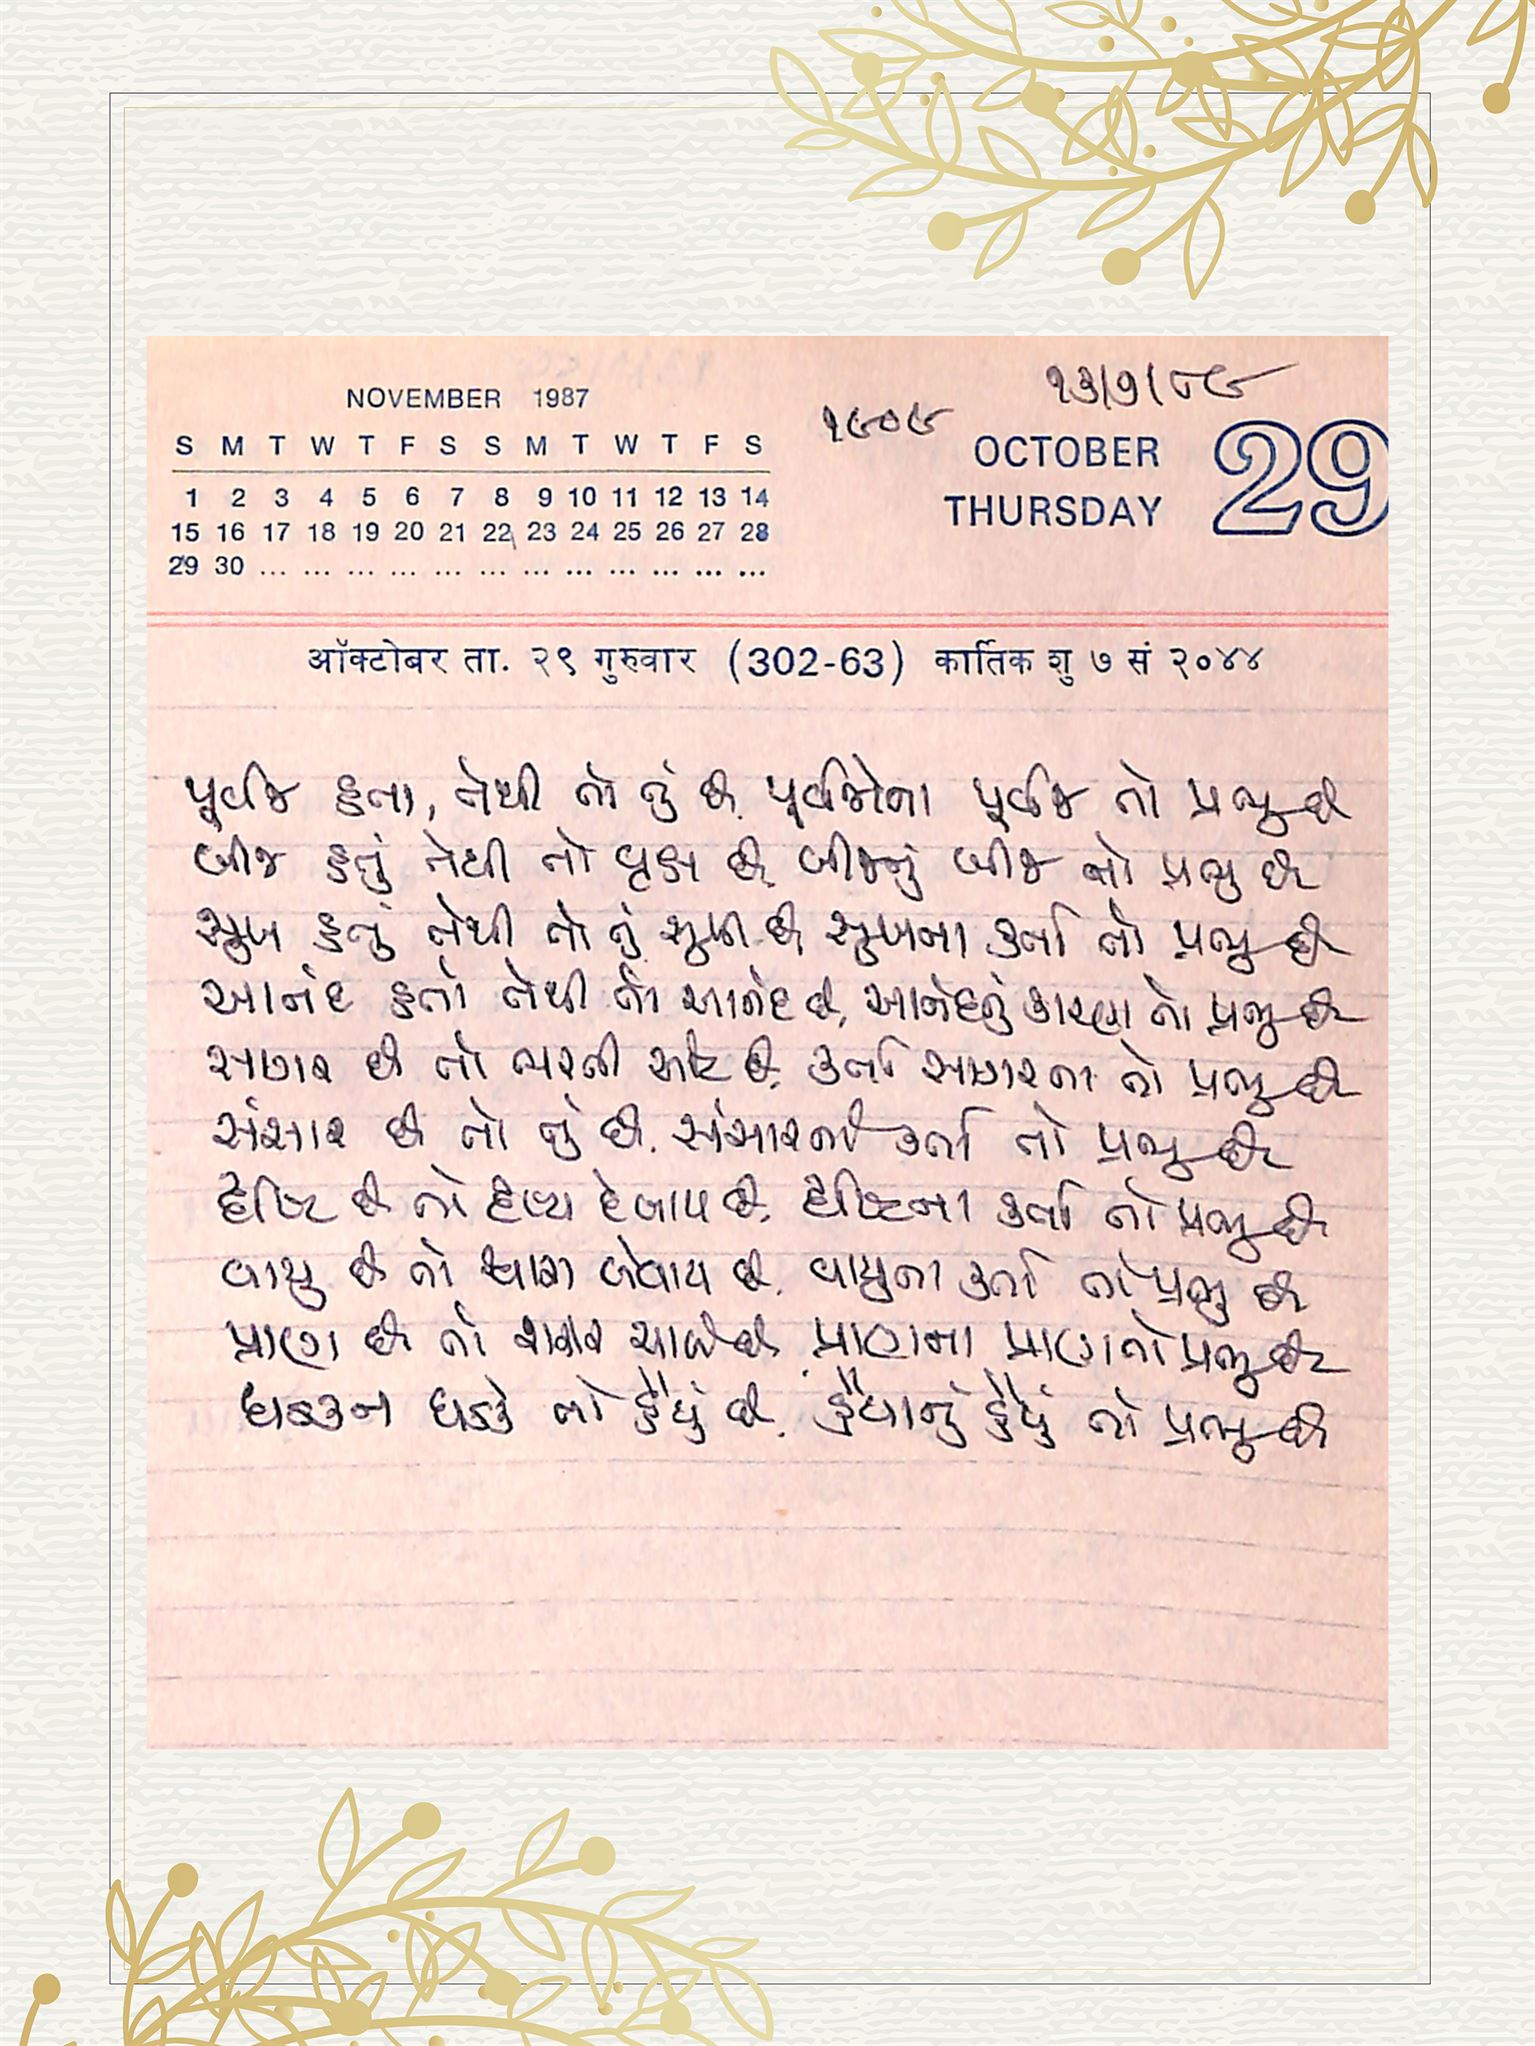 ૧૩/૭/૮૯
૧૯૦૯
NOVEMBER 1987
S M T W T F S S M T W T F S
1 2 3 4 5 6 7 8 9 10 11 12 13 14
15 16 17 18 19 20 21 22 23 24 25 26 27 28
29 30 ... ... ... ... ... ... ... ... ... ... ... ...
OCTOBER 29
THURSDAY
ऑक्टोबर ता. २९ गुरुवार (302-63) कार्तिक शु ७ सं २०४४
પૂર્વજ હતા, તેથી તો તું છે. પૂર્વજોના પૂર્વજ તો પ્રભુ છે
બીજ હતું તેથી તો વૃક્ષ છે, બીજનું બીજ તો પ્રભુ છે
સુખ હતું તેથી તો તું સુખી છે, સુખના કર્તા તો પ્રભુ છે
આનંદ હતો તેથી તો આનંદ છે, આનંદનું કારણ તો પ્રભુ છે
સાગર છે તો ભરતી ઓટ છે. કર્તા સાગરના તો પ્રભુ છે
સંસાર છે તો તું છે. સંસારના કર્તા તો પ્રભુ છે
દૃષ્ટિ છે તો દૃશ્ય દેખાય છે. દૃષ્ટિના કર્તા તો પ્રભુ છે
વાયુ છે તો શ્વાસ લેવાય છે. વાયુના કર્તા તો પ્રભુ છે
પ્રાણ છે તો શરીર ચાલે છે પ્રાણના પ્રાણ તો પ્રભુ છે
ધડકન ધડકે તો હૈયું છે. હૈયાનું હૈયું તો પ્રભુ છે